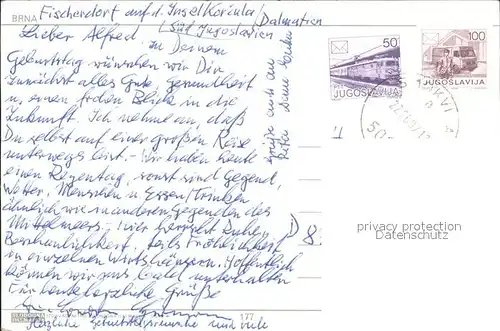 BRNA
Fischerdorf auf d. Insel Korčula / Dalmatien
(Süd Jugoslavien
Lieber Alfred! zu Deinem
Geburtstag wünschen wir Dir
zunächst alles Gute Gesundheit
u. einen frohen Blick in die
Zukunft. Ich nehme an, daß
Du selbst auf einer großen Reise
unterwegs bist. - Wir haben heute
einen Regentag, sonst sind Gegend,
Wetter, Menschen u. Essen/Trinken
ähnlich wie in anderen Gegenden des
Mittelmeers. - Hier herrscht Ruhe,
Beschaulichkeit, teils Fröhlichkeit
in einzelnen Wirtshäusern. Hoffentlich
können wir uns bald unterhalten
Für heute herzliche Grüße
Herzliche Geburtstagswünsche und viele
grüße auch an
Deine
50
JUGOSLAVIJA
100
JUGOSLAVIJA
D 8
177
privacy protection
Datenschutz